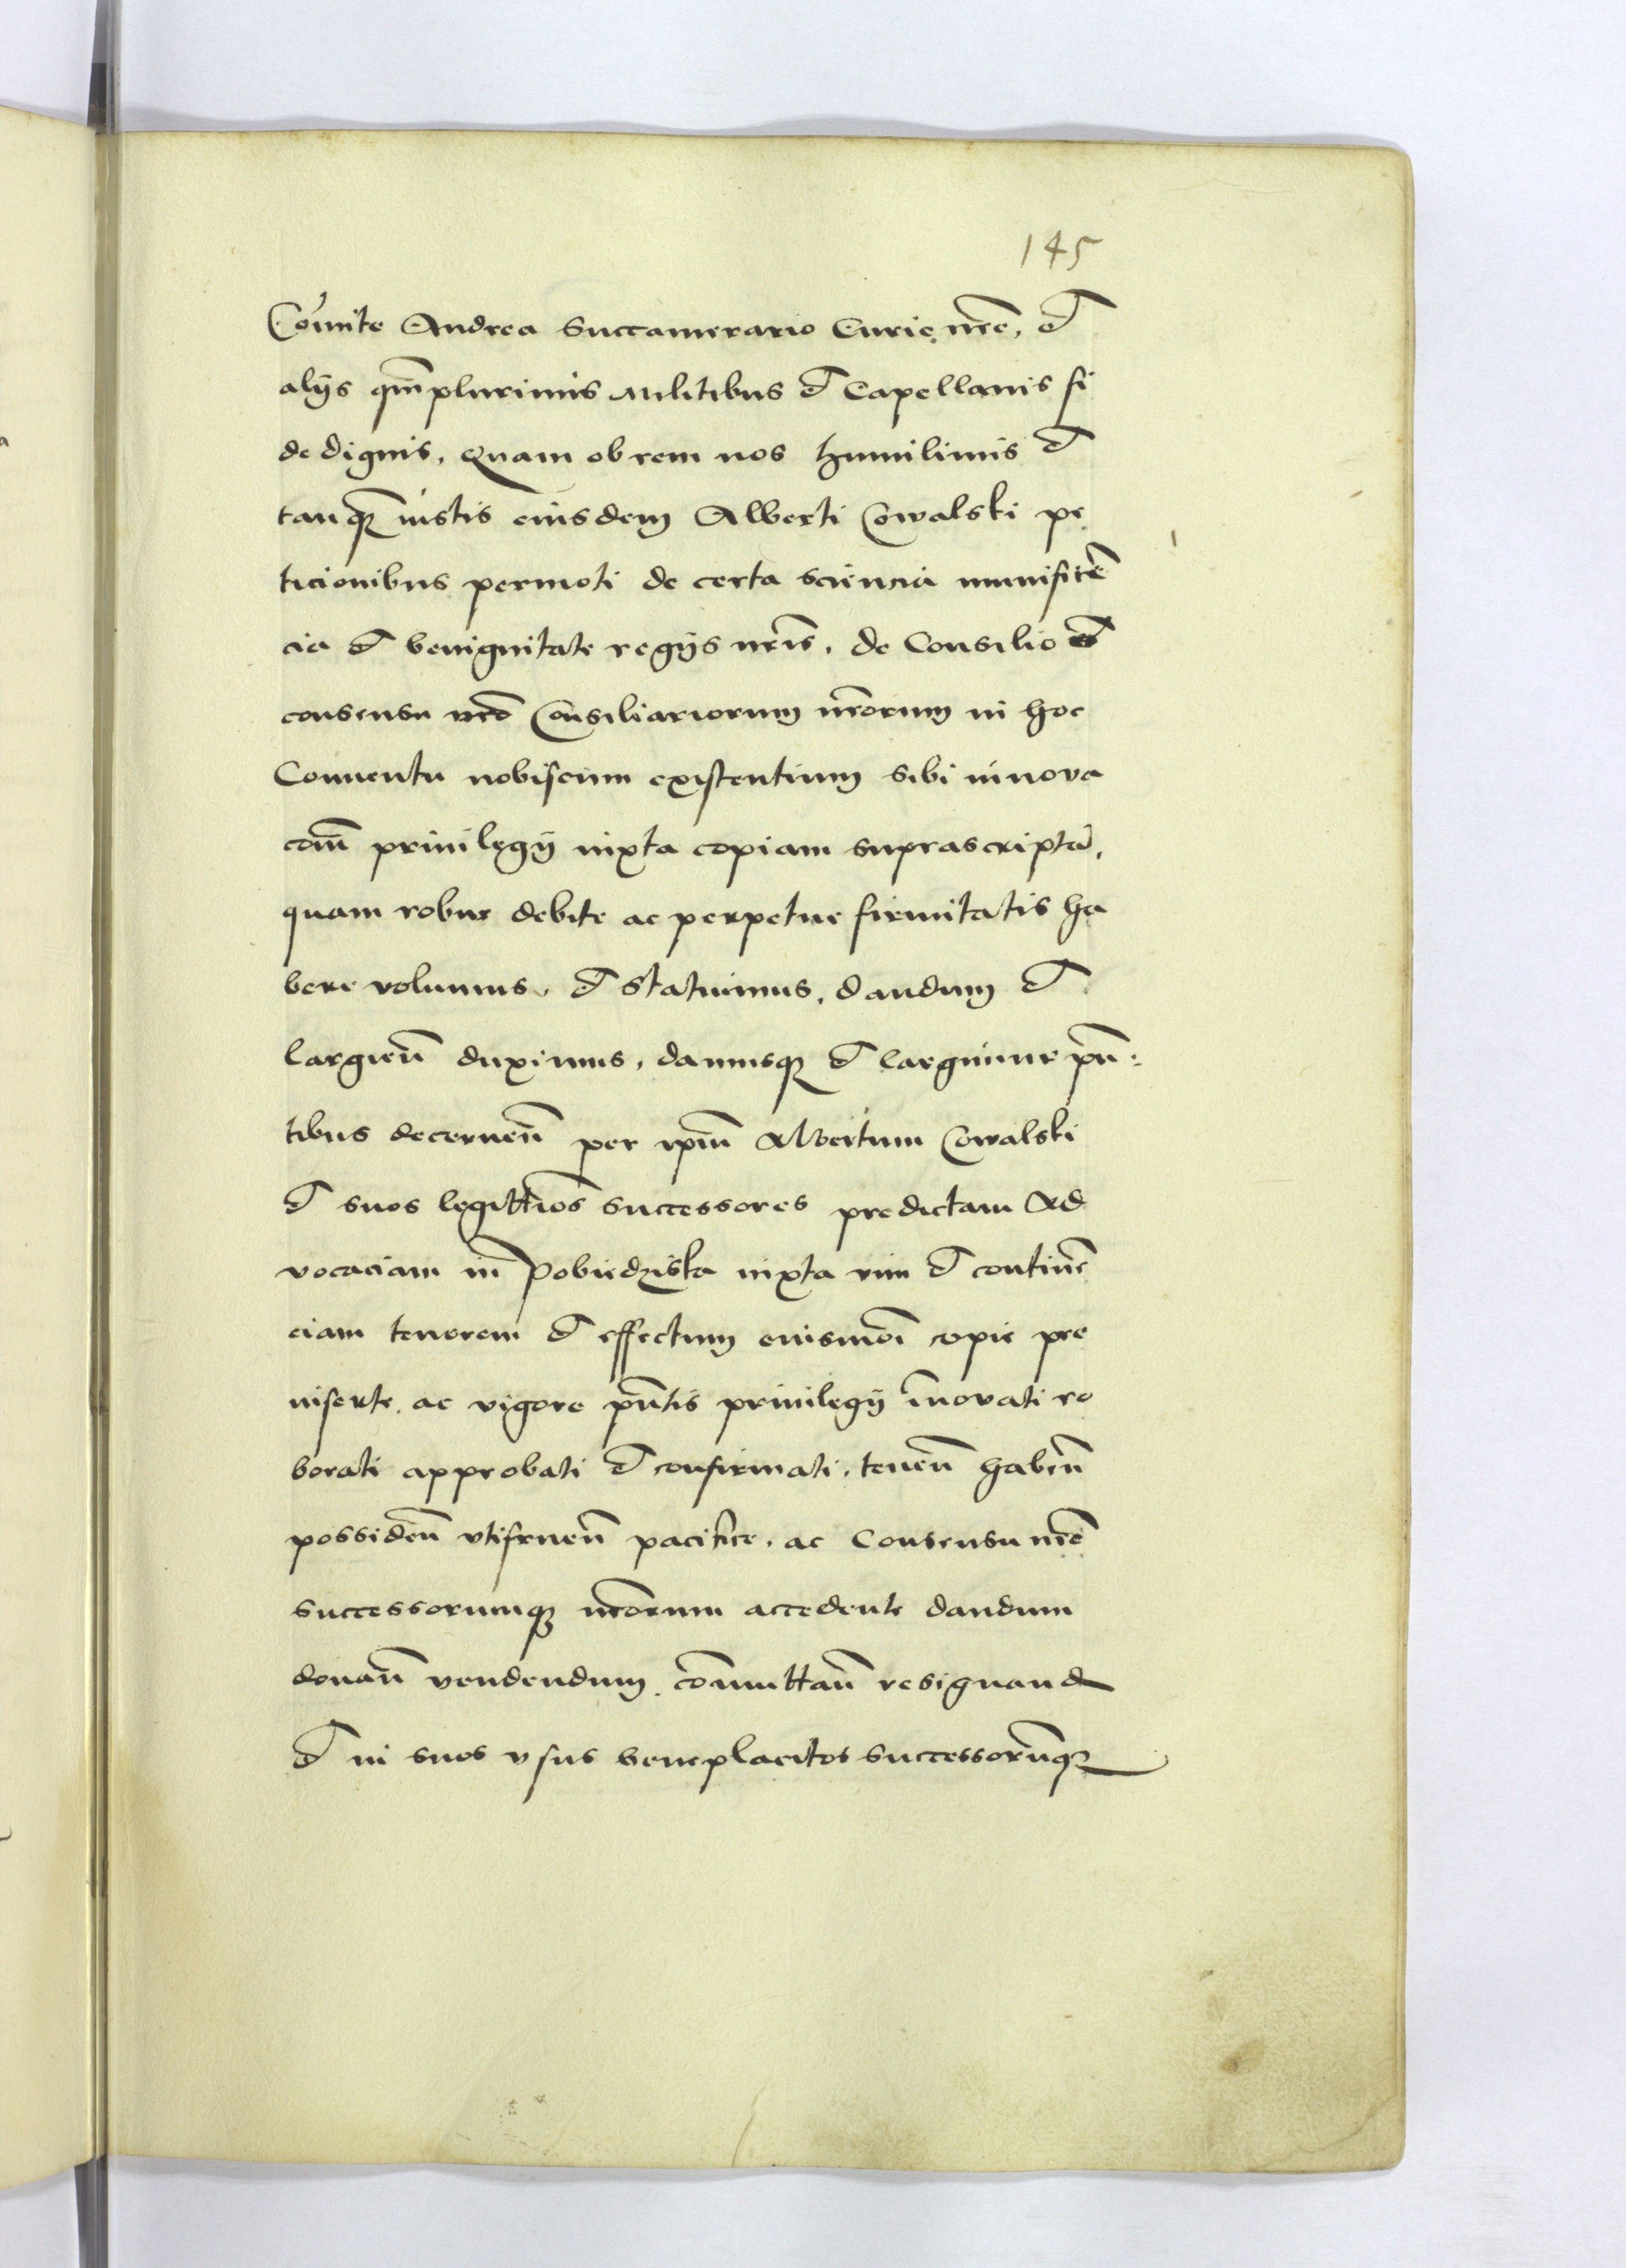 145
Comite Andrea Succamerario Curie nr̃e, et
alijs qm̃plurimis militibus et Capellanis fi
de dignis, Quam ob rem nos humilimis et
tanqȝ iustis eiusdem Alberti Cowalski pe
ticionibus permoti de certa sciencia munificẽ
cia et benignitate regijs nr̃is, de Consilio et
consensu Consiliariorum nr̃orum in hoc
Conuentu nobiscum existentium sibi innoua
com̃ priuilegij iuxta copiam suprascriptã,
quam robur debite ac perpetue firmitatis ha
bere volumus, et statuimus, dandum et
largien̄ duximus, damusqȝ et largimur pn̄:
tibus decernen̄ per ip̄m Albertum Cowalski
et suos legittĩos successores predictam Ad
vocaciam in Pobiedziska iuxta vim et continẽ
ciam tenorem et effectum euismõi copie pre
inserte, ac vigore pn̄tis priuilegij ĩnovati ro
borati approbati et confirmati, tenen̄ haben̄
possiden̄ vtifruen̄ pacifice, ac Consensu nr̃e
successorumqȝ nr̃orum accedente dandum
donan̄ vendendum, com̃uttan̄ resignand
et in suos vsus beneplacitos successorũqȝ